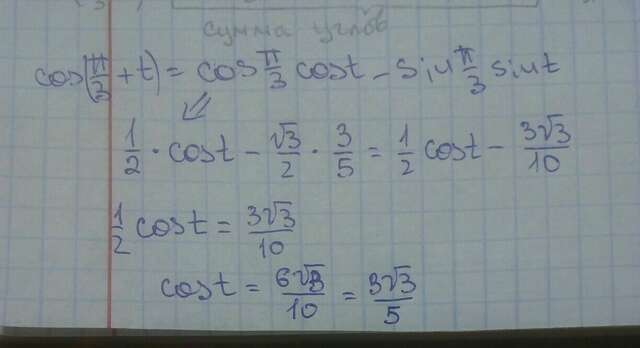 сумма углов
cos(π/3 + t) = cos π/3 cost - sin π/3 sint
1/2 · cost - √3/2 · 3/5 = 1/2 cost - 3√3/10
1/2 cost = 3√3/10
cost = 6√3/10 = 3√3/5